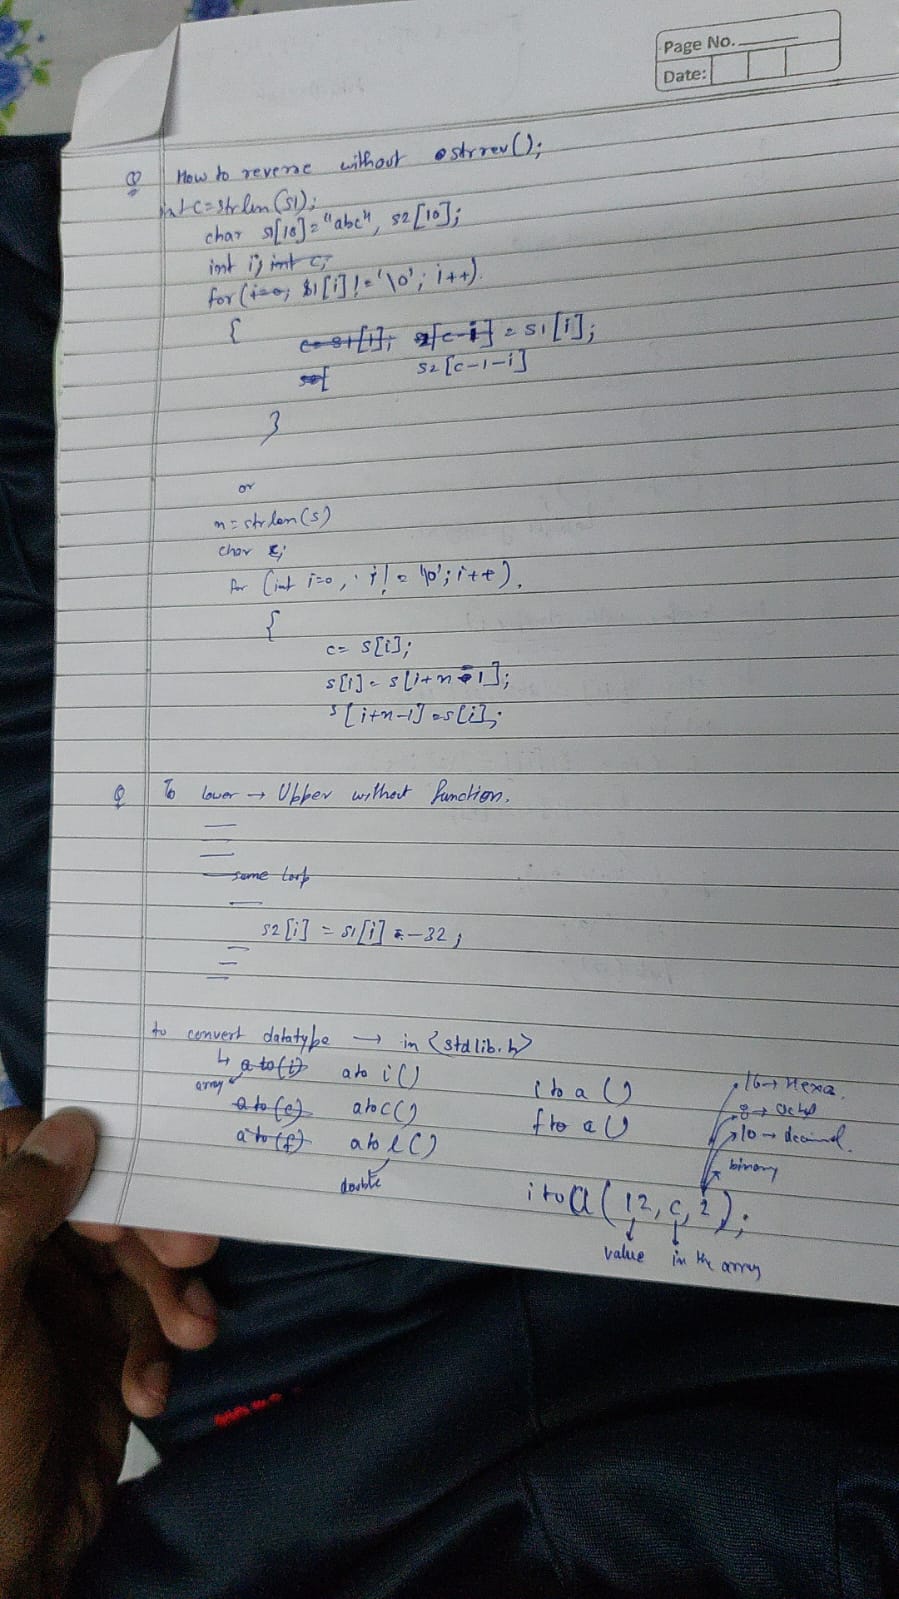 Page No.
Date:
Q How to reverse without strrev();
int c=strlen(s1);
char s1[10]="abc", s2[10];
int i; int c;
for(i=0; s1[i]!='\0'; i++)
{
c=s1[i]; s2[c-i] = s1[i];
s2[c-1-i]
}
or
n=strlen(s)
char c;
for (int i=0, i!='\0'; i++)
{
c= s[i];
s[i]= s[i+n-1];
s[i+n-1]=s[i];
Q To lower → Upper without function.
same loop
s2[i] = s1[i] -32;
to convert datatype → in <stdlib.h>
↳ a to(i) ato i() i to a() 16→Hexa.
array a to(c) atoc() f to a() 8→Octal
a to(f) ato l() 10→decimal.
double binary
itoa(12,c,2);
value in the array